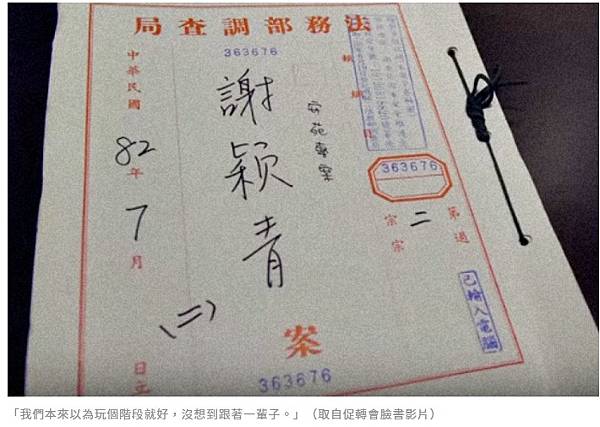 局查調部務法
363676
中華民國82年7月 日立
謝穎青
(二)
安苑專案
363676
第 過
二 宗 宗
已輸入電腦
案
363676
「我們本來以為玩個階段就好，沒想到跟著一輩子。」（取自促轉會臉書影片）